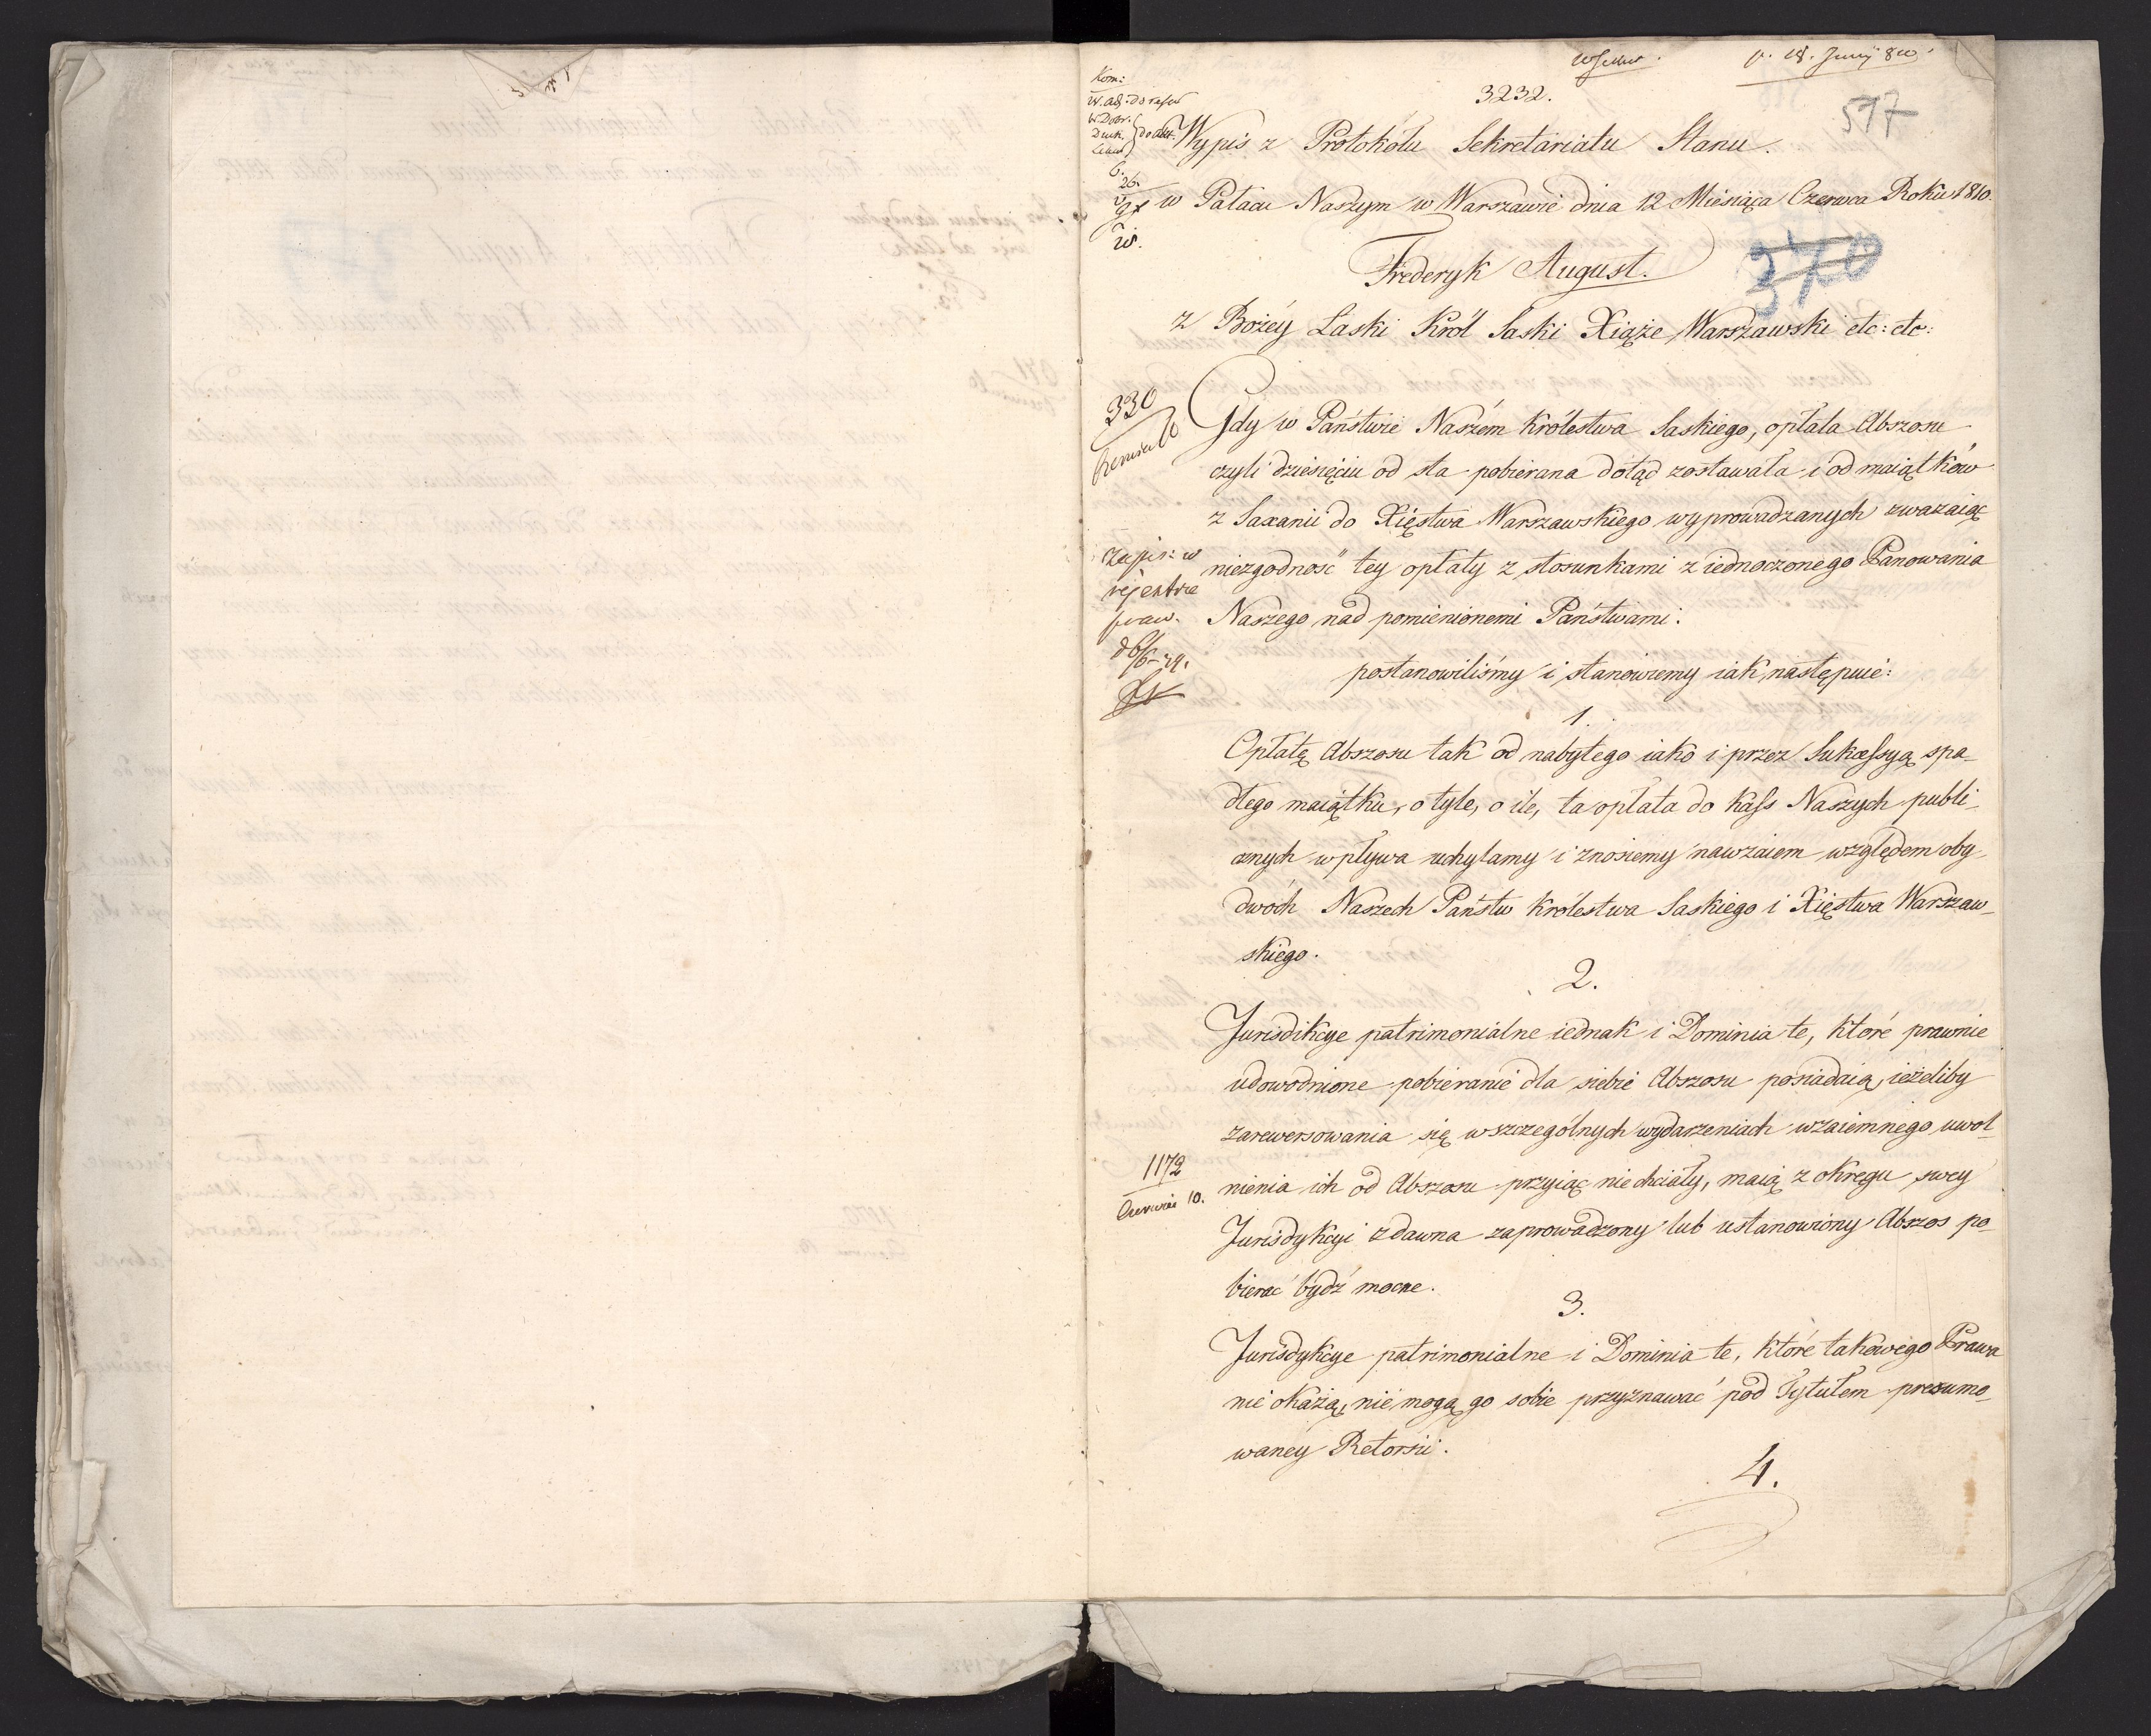 3232.
597
Wypis z Protokołu Sekretariatu Stanu.
w Pałacu Naszym w Warszawie dnia 12 Miesiąca Czerwca Roku 1810.
Frederyk August.
370
z Bożéy Łaski Król Saski Xiąże Warszawski etc: etc:
330
Gdy w Państwie Naszém Królestwa Saskiego, opłata Abszosu
czyli dziesięciu od sta pobierana dotąd zostawała i od maiątków
z Saxanii do Xięstwa Warszawskiego wyprowadzanych zważaiąc
zapis: w
niezgodność tey opłaty z stosunkami ziednoczonego Panowania
rejestrze
Naszego nad pomienionemi Państwami:
praw.
postanowiliśmy i stanowiemy iak następuie:
1.
Opłatę Abszosu tak od nabytego iako i przez Sukcessyą spa-
dłego maiątku, o tyle, o ile, ta opłata do Kass Naszych publi-
cznych wpływa uchylamy i znosiemy nawzaiem względem oby-
dwóch Naszech Państw Królestwa Saskiego i Xięstwa Warszaw-
skiego.
2.
Jurisdikcye patrimonialne iednak i Dominia te, które prawnie
udowodnione pobieranie dla siebie Abszosu posiadaią, ieżeliby
zarewersowania się w szczególnych wydarzeniach wzaiemnego uwol-
1172
nienia ich od Abszosu przyiąć nie chciały, maią z okręgu swey
Czerwca 10.
Jurisdykcyi zdawna zaprowadzony lub ustanowiony Abszos po-
bierać bydź mocne.
3.
Jurisdykcye patrimonialne i Dominia te, które takowego Prawa
nie okażą, nie mogą go sobie przyznawać pod Tytułem presumo-
waney Retorsii.
4.